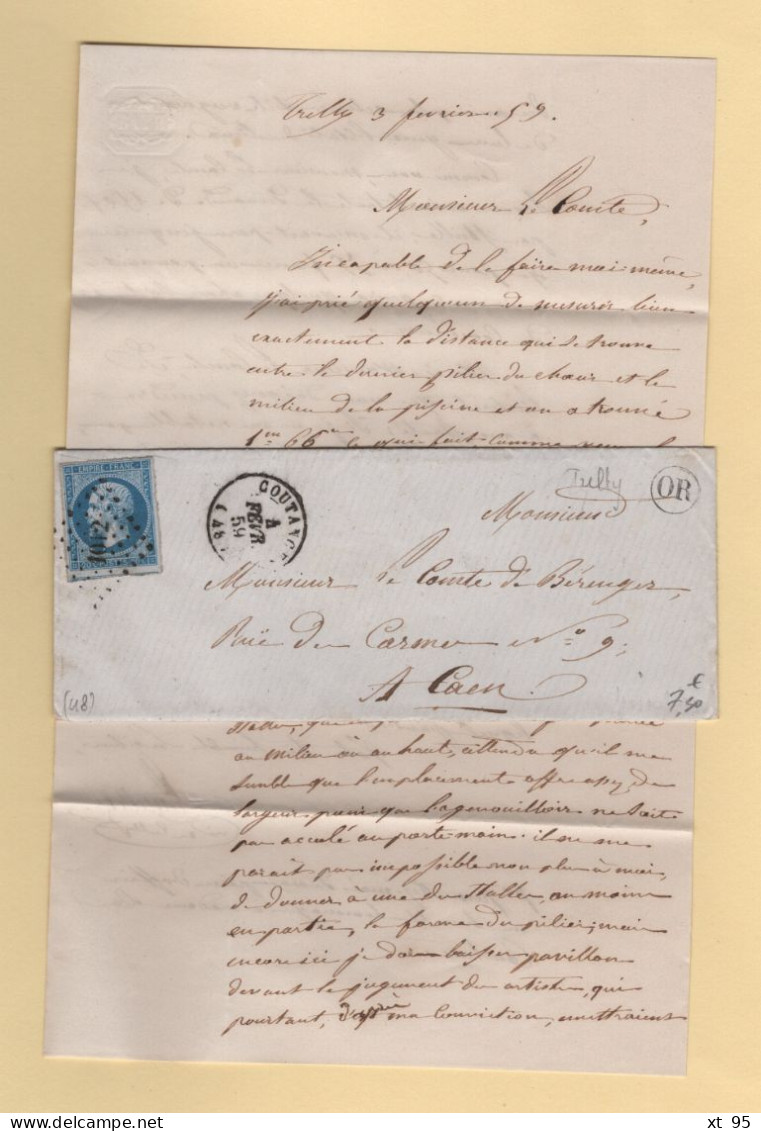 Trelly 3 fevrier 59.
Monsieur Le Comte,
Incapable de le faire moi-même,
j'ai prié quelqueun de mesurer bien
exactement la distance qui se trouve
entre le dernier pilier du chœur et le
milieu de la piscine et on a trouvé
1m 66c ce qui fait comme
EMPIRE FRANC
1042
COUTANCES
4
FEVR.
59
(48)
Trelly
OR
Monsieur
Monsieur Le Comte de Bérenger,
Ruë des Carmes No 9;
A Caen.
(48)
€
7,50
au milieu où au haut, attendu qu'il me
semble que l'emplacement offre assez de
largeur pour que l'agenouilloir ne soit
pas acculé au porte-main. il ne me
parait pas impossible non plus à moi,
de donner a une des Stalles, au moins
en partie, la forme du pilier; mais
encore ici je dois baisser pavillon
devant le jugement des artistes, qui
pourtant, d'après ma Conviction, mettraient
xt 95